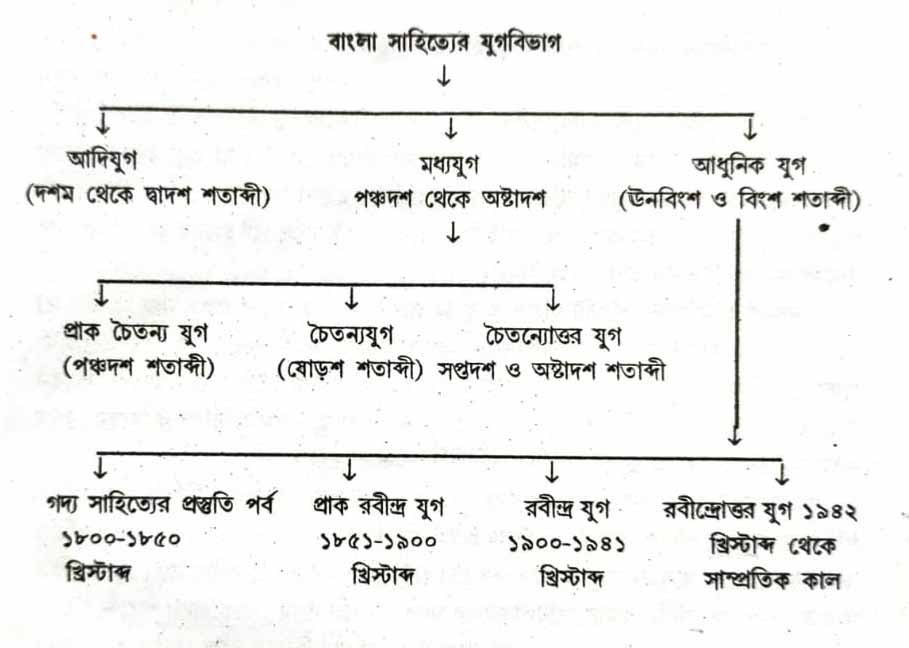 বাংলা সাহিত্যের যুগবিভাগ
আদিযুগ
(দশম থেকে দ্বাদশ শতাব্দী)
মধ্যযুগ
পঞ্চদশ থেকে অষ্টাদশ
আধুনিক যুগ
(ঊনবিংশ ও বিংশ শতাব্দী)
প্রাক চৈতন্য যুগ
(পঞ্চদশ শতাব্দী)
চৈতন্যযুগ
(ষোড়শ শতাব্দী)
চৈতন্যোত্তর যুগ
সপ্তদশ ও অষ্টাদশ শতাব্দী
গদ্য সাহিত্যের প্রস্তুতি পর্ব
১৮০০-১৮৫০
খ্রিস্টাব্দ
প্রাক রবীন্দ্র যুগ
১৮৫১-১৯০০
খ্রিস্টাব্দ
রবীন্দ্র যুগ
১৯০০-১৯৪১
খ্রিস্টাব্দ
রবীন্দ্রোত্তর যুগ ১৯৪২
খ্রিস্টাব্দ থেকে
সাম্প্রতিক কাল